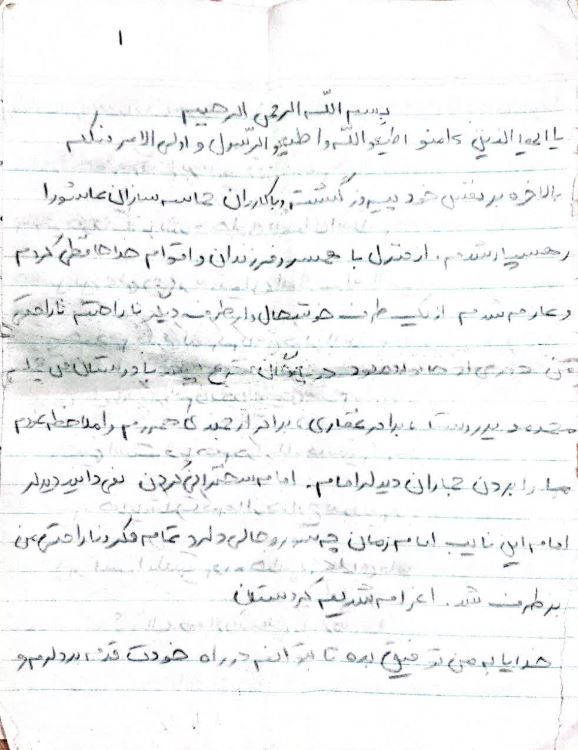 ۱
بسم الله الرحمن الرحیم
یا ایها الذین ءامنو اطیعو الله و اطیعو الرسول و اولی الامر منکم
بالاخره بر نفس خود پیروز گشته و با کاروان حماسه سازان عاشورا
رهسپار شدم . از منزل با همسر و فرزندان و اقوام خداحافظی کردم
و عازم شدم از یک طرف خوشحال و از طرف دیگر ناراحتم ناراحتی
من دوری از خانواده بود
برادر غفاری ، برادر
ما را بردن جماران دیدار امام . امام سخنرانی کردن نمی دانید دیدار
امام این نایب امام زمان چه شور و حالی دارد تمام فکر و ناراحتی من
بر طرف شد . اعزام شدیم کردستان
خدایا به من توفیق بده تا بتوانم در راه خودت قدم بردارم و